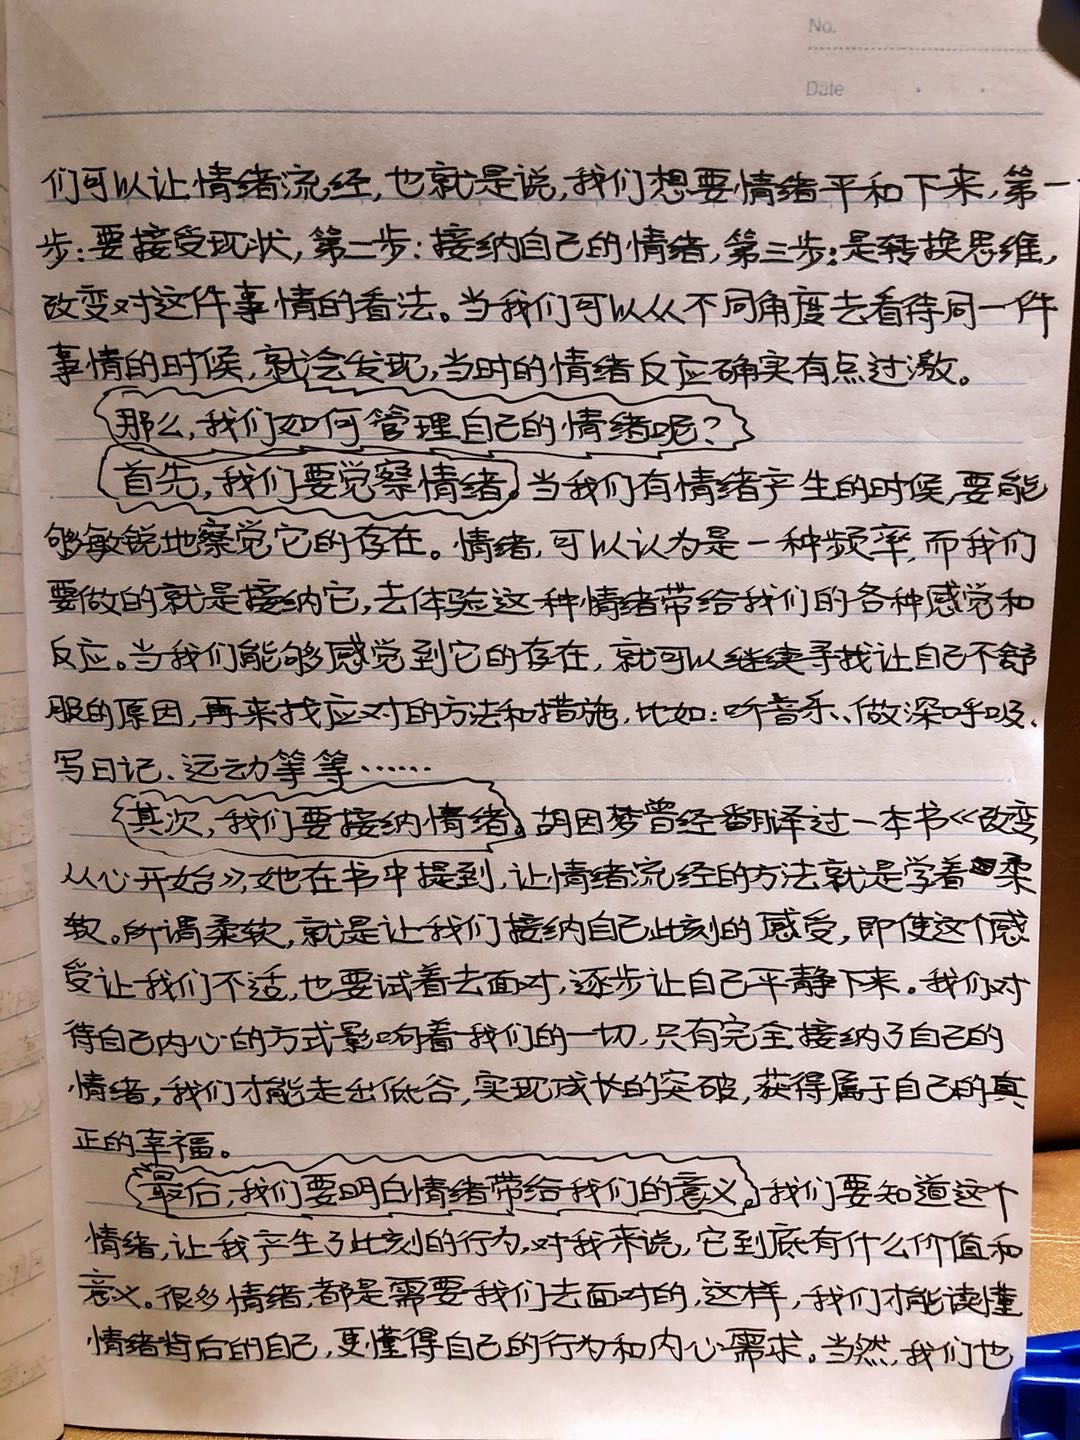 No.
Date
们可以让情绪流经,也就是说,我们想要情绪平和下来,第一
步:要接受现状,第二步:接纳自己的情绪,第三步:是转换思维,
改变对这件事情的看法。当我们可以从不同角度去看待同一件
事情的时候,就会发现,当时的情绪反应确实有点过激。
那么,我们如何管理自己的情绪呢?
首先,我们要觉察情绪。当我们有情绪产生的时候,要能
够敏锐地察觉它的存在。情绪,可以认为是一种频率,而我们
要做的就是接纳它,去体验这种情绪带给我们的各种感觉和
反应。当我们能够感觉到它的存在,就可以继续寻找让自己不舒
服的原因,再来找应对的方法和措施,比如:听音乐、做深呼吸、
写日记、运动等等……
其次,我们要接纳情绪。胡因梦曾经翻译过一本书《改变,
从心开始》,她在书中提到,让情绪流经的方法就是学着柔
软。所谓柔软,就是让我们接纳自己此刻的感受,即使这个感
受让我们不适,也要试着去面对,逐步让自己平静下来。我们对
待自己内心的方式影响着我们的一切,只有完全接纳了自己的
情绪,我们才能走出低谷,实现成长的突破,获得属于自己的真
正的幸福。
最后,我们要明白情绪带给我们的意义。我们要知道这个
情绪,让我产生了此刻的行为,对我来说,它到底有什么价值和
意义。很多情绪,都是需要我们去面对的,这样,我们才能读懂
情绪背后的自己,更懂得自己的行为和内心需求。当然,我们也